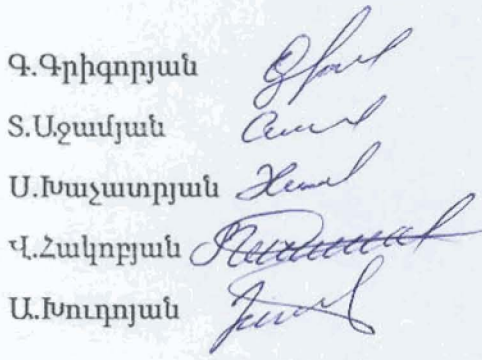 Գ.Գրիգորյան
Տ.Աջամյան
Ս.Խաչատրյան
Վ.Հակոբյան
Ա.Խուդոյան